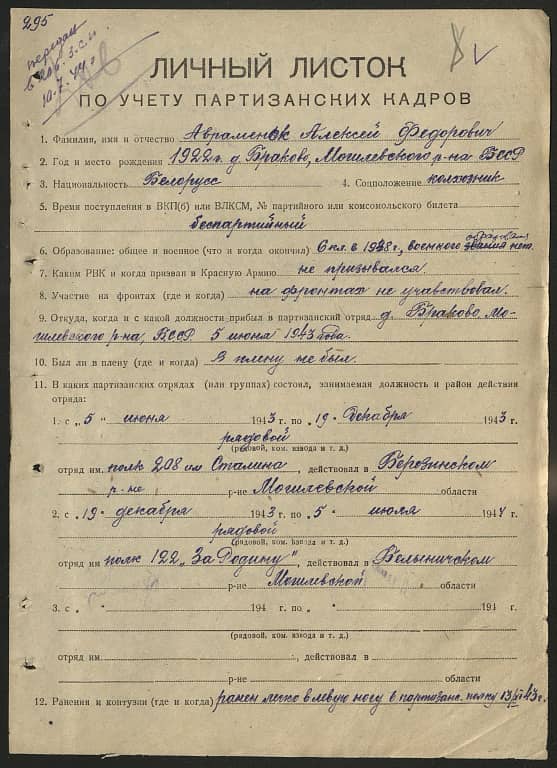 295
передан
в
10.7.44 г
V
ЛИЧНЫЙ ЛИСТОК
ПО УЧЕТУ ПАРТИЗАНСКИХ КАДРОВ
1. Фамилия, имя и отчество Авраменок Алексей Федорович
2. Год и место рождения 1922 г. д. Браково, Могилевского р-на БССР
3. Национальность Белорусс 4. Соцположение колхозник
5. Время поступления в ВКП(б) или ВЛКСМ, № партийного или комсомольского билета
беспартийный
6. Образование: общее и военное (что и когда окончил) 6 кл. в 1938 г., военного образования нет.
7. Каким РВК и когда призван в Красную Армию не призывался.
8. Участие на фронтах (где и когда) на фронтах не участвовал.
9. Откуда, когда и с какой должности прибыл в партизанский отряд д. Браково, Мо-
гилевского р-на, БССР 5 июня 1943 года.
10. Был ли в плену (где и когда) В плену не был.
11. В каких партизанских отрядах (или группах) состоял, занимаемая должность и район действия
отряда:
1. с „5" июня 1943 г. по „19" декабря 1943 г.
рядовой
(рядовой, ком. взвода и т. д.)
отряд им. полк 208 им Сталина, действовал в Березинском
р-не р-не Могилевской области
2. с „19" декабря 1943 г. по „5" июля 1944 г.
рядовой
(рядовой, ком. взвода и т. д.)
отряд им полк 122 „За Родину", действовал в Белыничском
р-не Могилевской области
3. с „ " 194 г. по „ " 194 г.
(рядовой, ком. взвода и т. д.)
отряд им. действовал в
р-не области
12. Ранения и контузии (где и когда) ранен легко в левую ногу в партизанс. полку 13/XI 43 г.